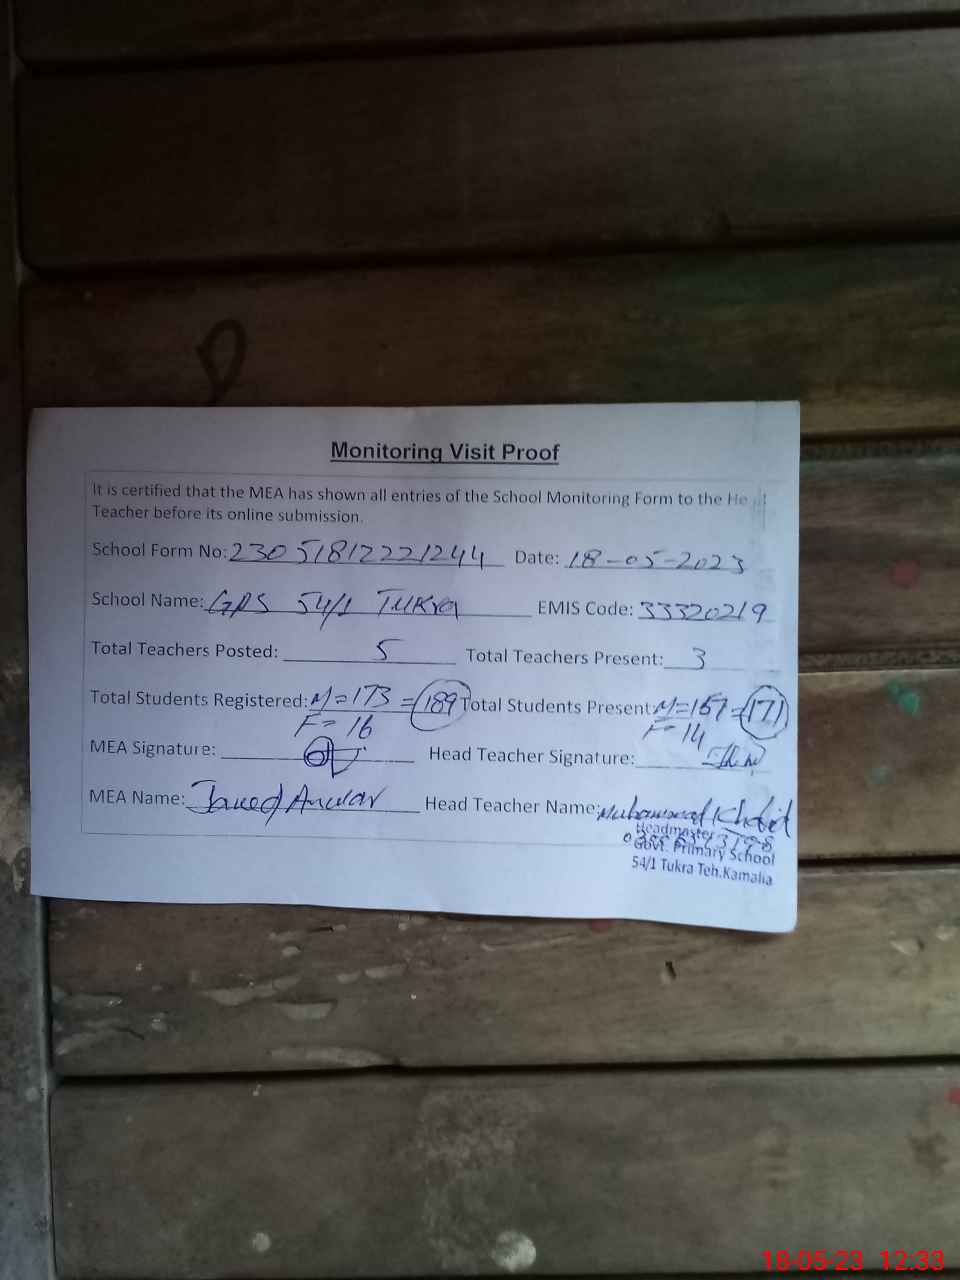 Monitoring Visit Proof
It is certified that the MEA has shown all entries of the School Monitoring Form to the He d
Teacher before its online submission.
School Form No: 23051812221244 Date: 18-05-2023
School Name: GPS 54/1 TUKRA EMIS Code: 33320219
Total Teachers Posted: 5 Total Teachers Present: 3
Total Students Registered: M=173 =189 Total Students Present M=157=171
F=16 F=14
MEA Signature: Head Teacher Signature:
MEA Name: Javed Anwar Head Teacher Name: Muhammad Khalid
Headmaster
Govt. Primary School
54/1 Tukra Teh.Kamalia
18-05-23 12:33